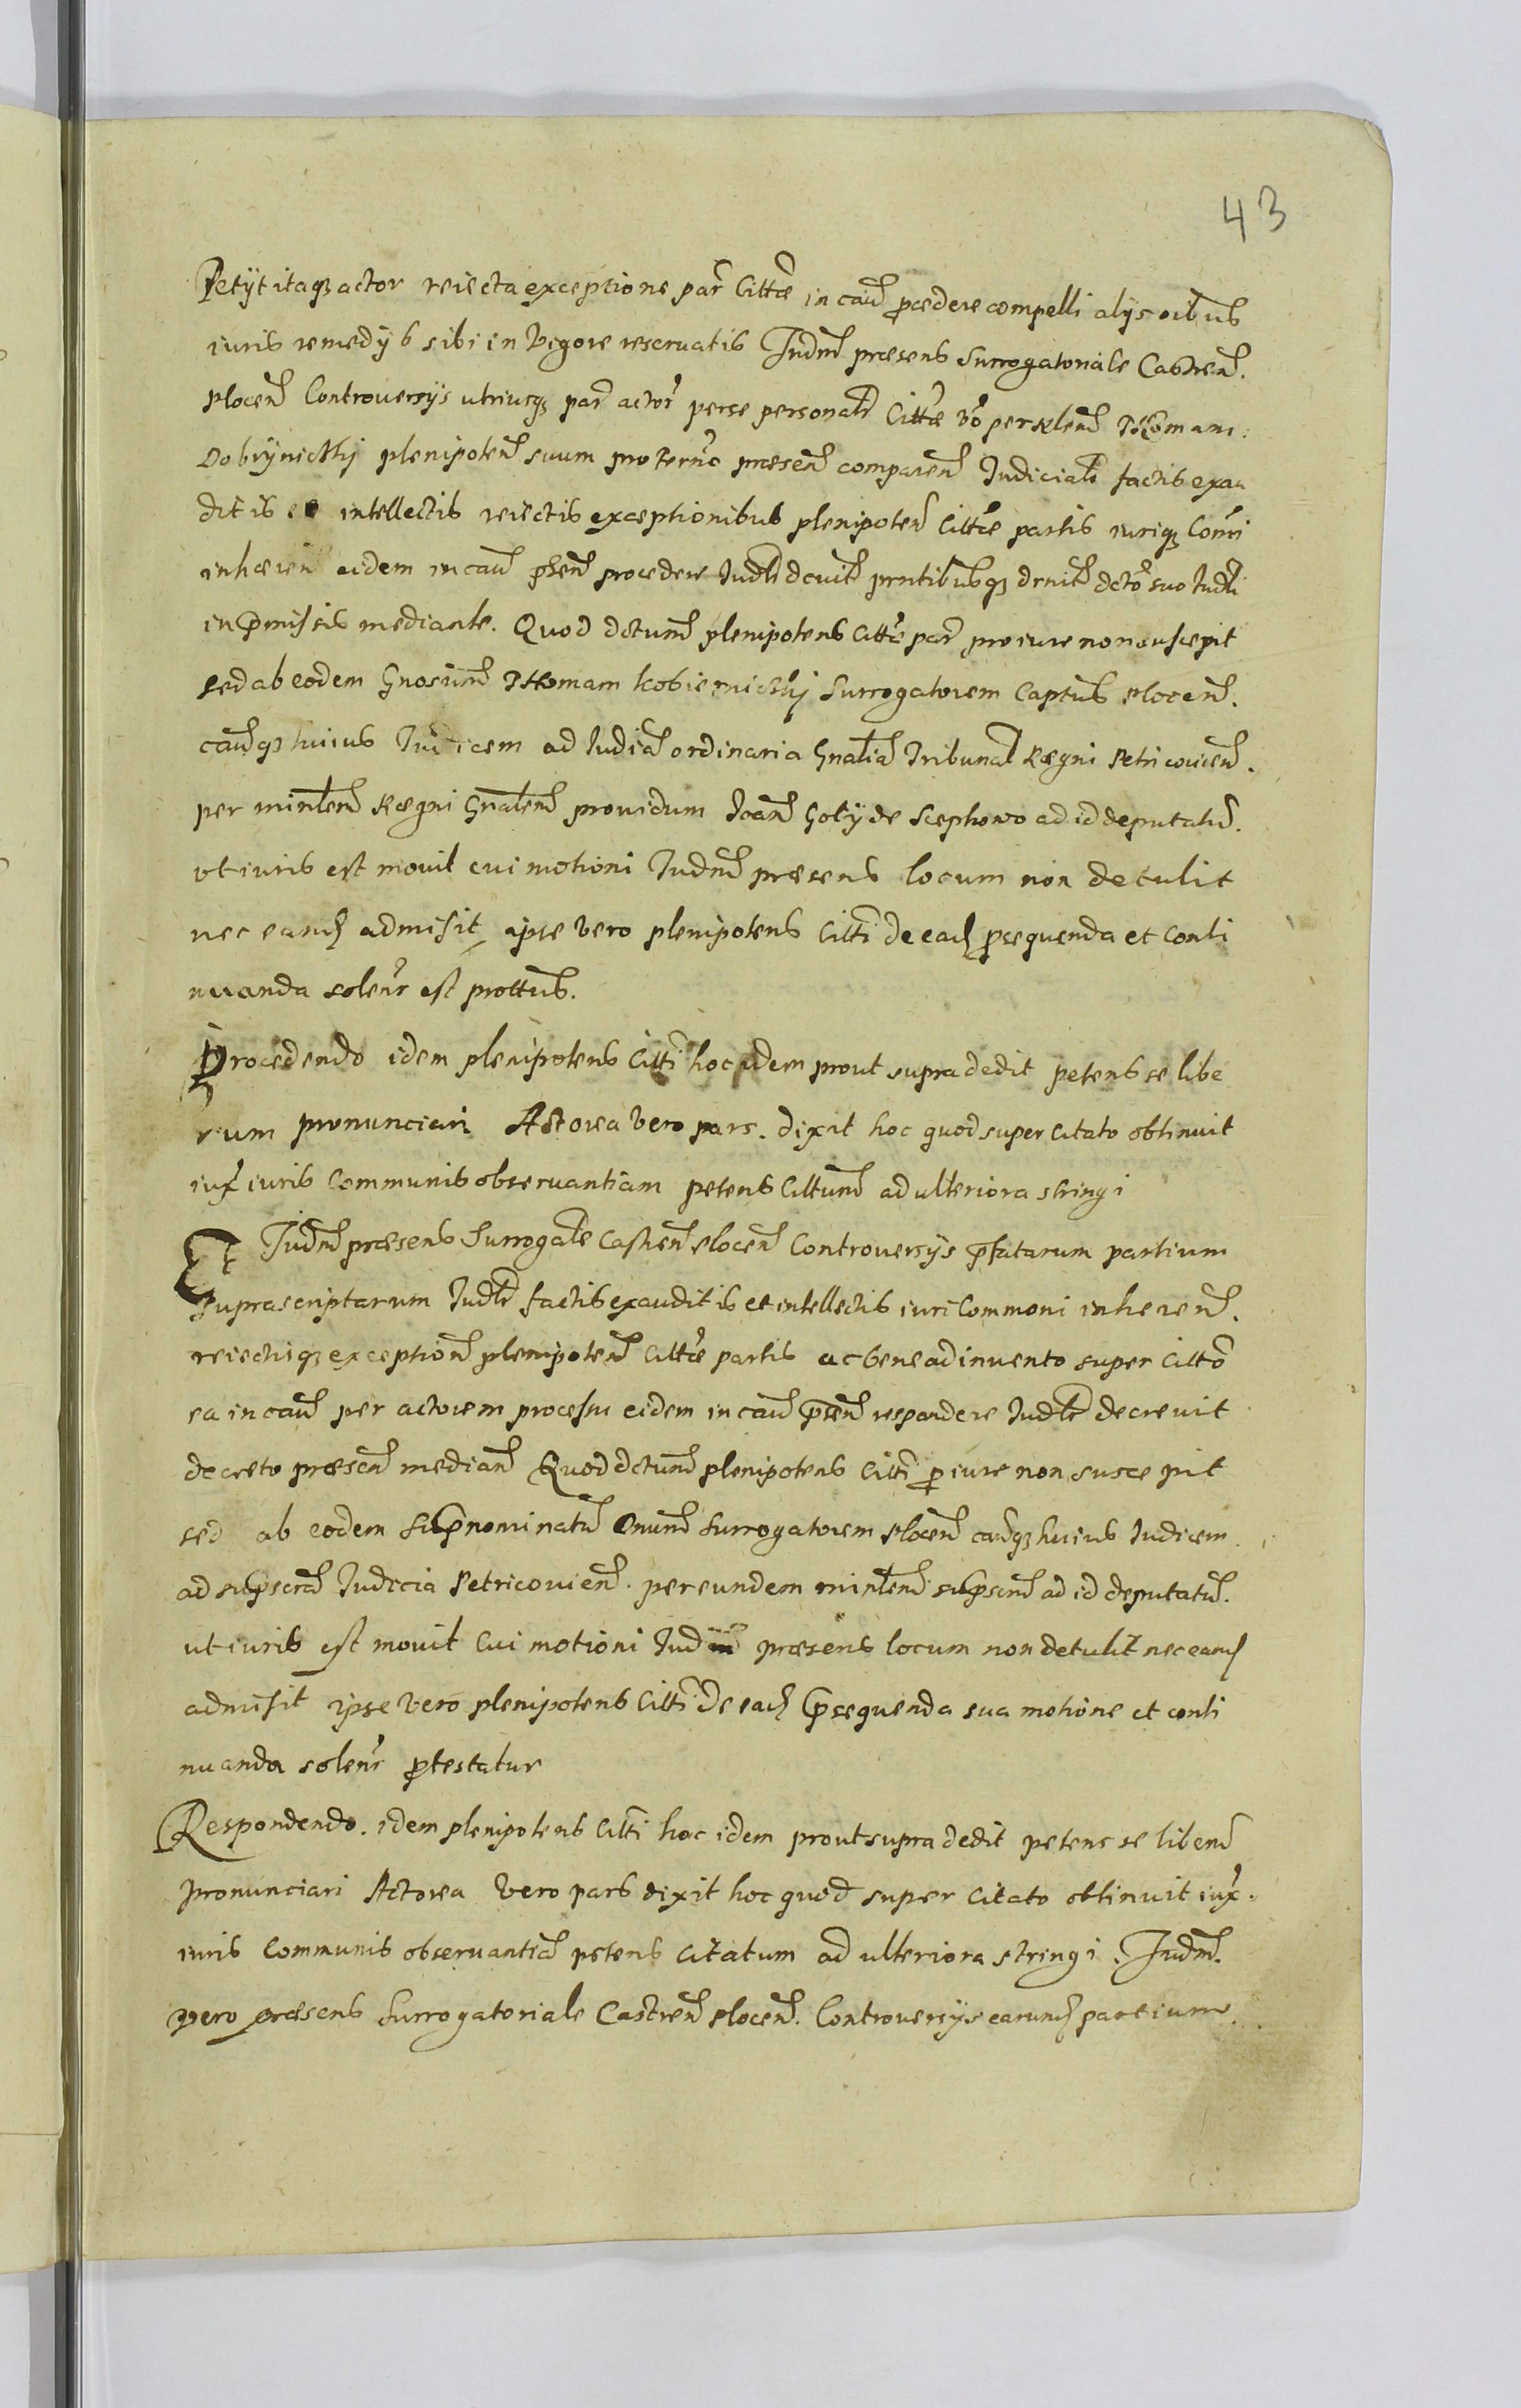 43
Petÿt itaq3 actor reiecta exceptione par Cittæ in cau procedere compelli alÿs oibus
iuris remedÿs sibi in vigore reservatis Judm præsens Surrogatoriale Castren.
Plocen Controversÿs utriusq3 par actor per se personalr Cittæ vo per Nlem Thomam
Dobrÿnicthj plenipoten suum pro termo præsen comparen Judicialr factis exau
ditis et intellectis reiectis exceptionibus plenipoten Cittæ partis iuriq3 Comi
inhæren eidem in cau phen procedere Judlr dcuit prntibusq3 drnit dcto suo Judli
in pmissis mediante. Quod dctum plenipotens Cittæ par pro iure non suscepit
sed ab eodem Gnosum Thomam Kobiernicthj Surrogatorem Captus Plocen.
cauq3 huius Judicem ad Judia ordinaria Gnalia Tribunal Regni Petricovien.
per minlem Regni Gnalem providum Joan Gotÿ de Scephowo ad id deputatu.
ut iuris est movit cui motioni Judm præsens locum non detulit
nec eand admisit ipse vero plenipotens Citti de ead psequenda et conti
nuanda solenr est prottus.
Procedendo idem plenipotens Citti hoc idem prout supra dedit petens se libe
rum pronunciari Actorea vero pars. dixit hoc quod super citato obtinuit
iux iuris Communis observantiam petens Cittum ad ulteriora stringi
Et Judm præsens Surrogale Castren Plocen Controversÿs pfatarum partium
suprascriptarum Judlr factis exauditis et intellectis iuri Commoni inheren.
reiectisq3 exception plenipoten Cittæ partis ac bene adinvento super Citto
ea in cau per actorem processu eidem in cau psen respondere Judlr decrevit
decreto præsen median Quod dctum plenipotens Citti p iure non suscepit
sed ab eodem supnominatu Dnum Surrogatorem Plocen cauq3 huius Judicem
ad supscra Judicia Petricovien. per eundem minlem supscrm ad id deputatu.
ut iuris est movit Cui motioni Judm præsens locum non detulit nec eand
admisit ipse vero plenipotens Citti de ead psequenda sua motione et conti
nuanda solenr ptestatur
Respondendo. idem plenipotens Citti hoc idem prout supra dedit petens se liberu
pronunciari Actorea vero pars dixit hoc quod super citato obtinuit iux.
iuris Communis observantia petens citatum ad ulteriora stringi. Judm.
vero præsens Surrogatoriale Castren Plocen. Controversÿs earund partium.